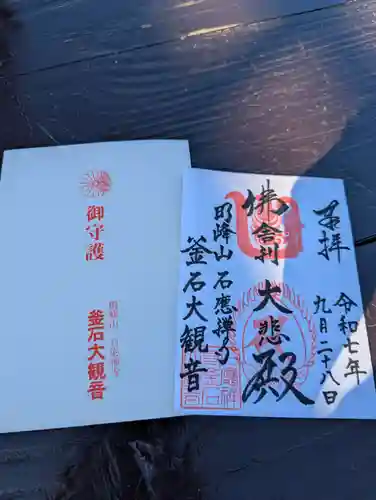 御守護
明峰山 石応禅寺
釜石大観音
奉拝
令和七年
九月二十八日
佛舎利
大悲殿
明峰山 石應禅寺
釜石大観音